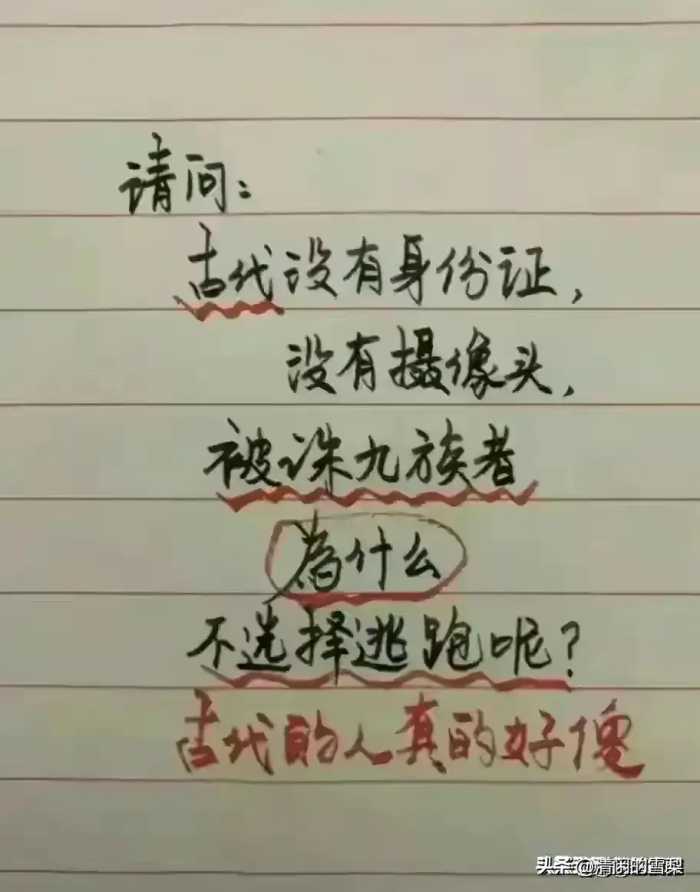 请问：
古代没有身份证，
没有摄像头，
被诛九族者
為什么
不选择逃跑呢？
古代的人真的好傻
@清闲的雪梨